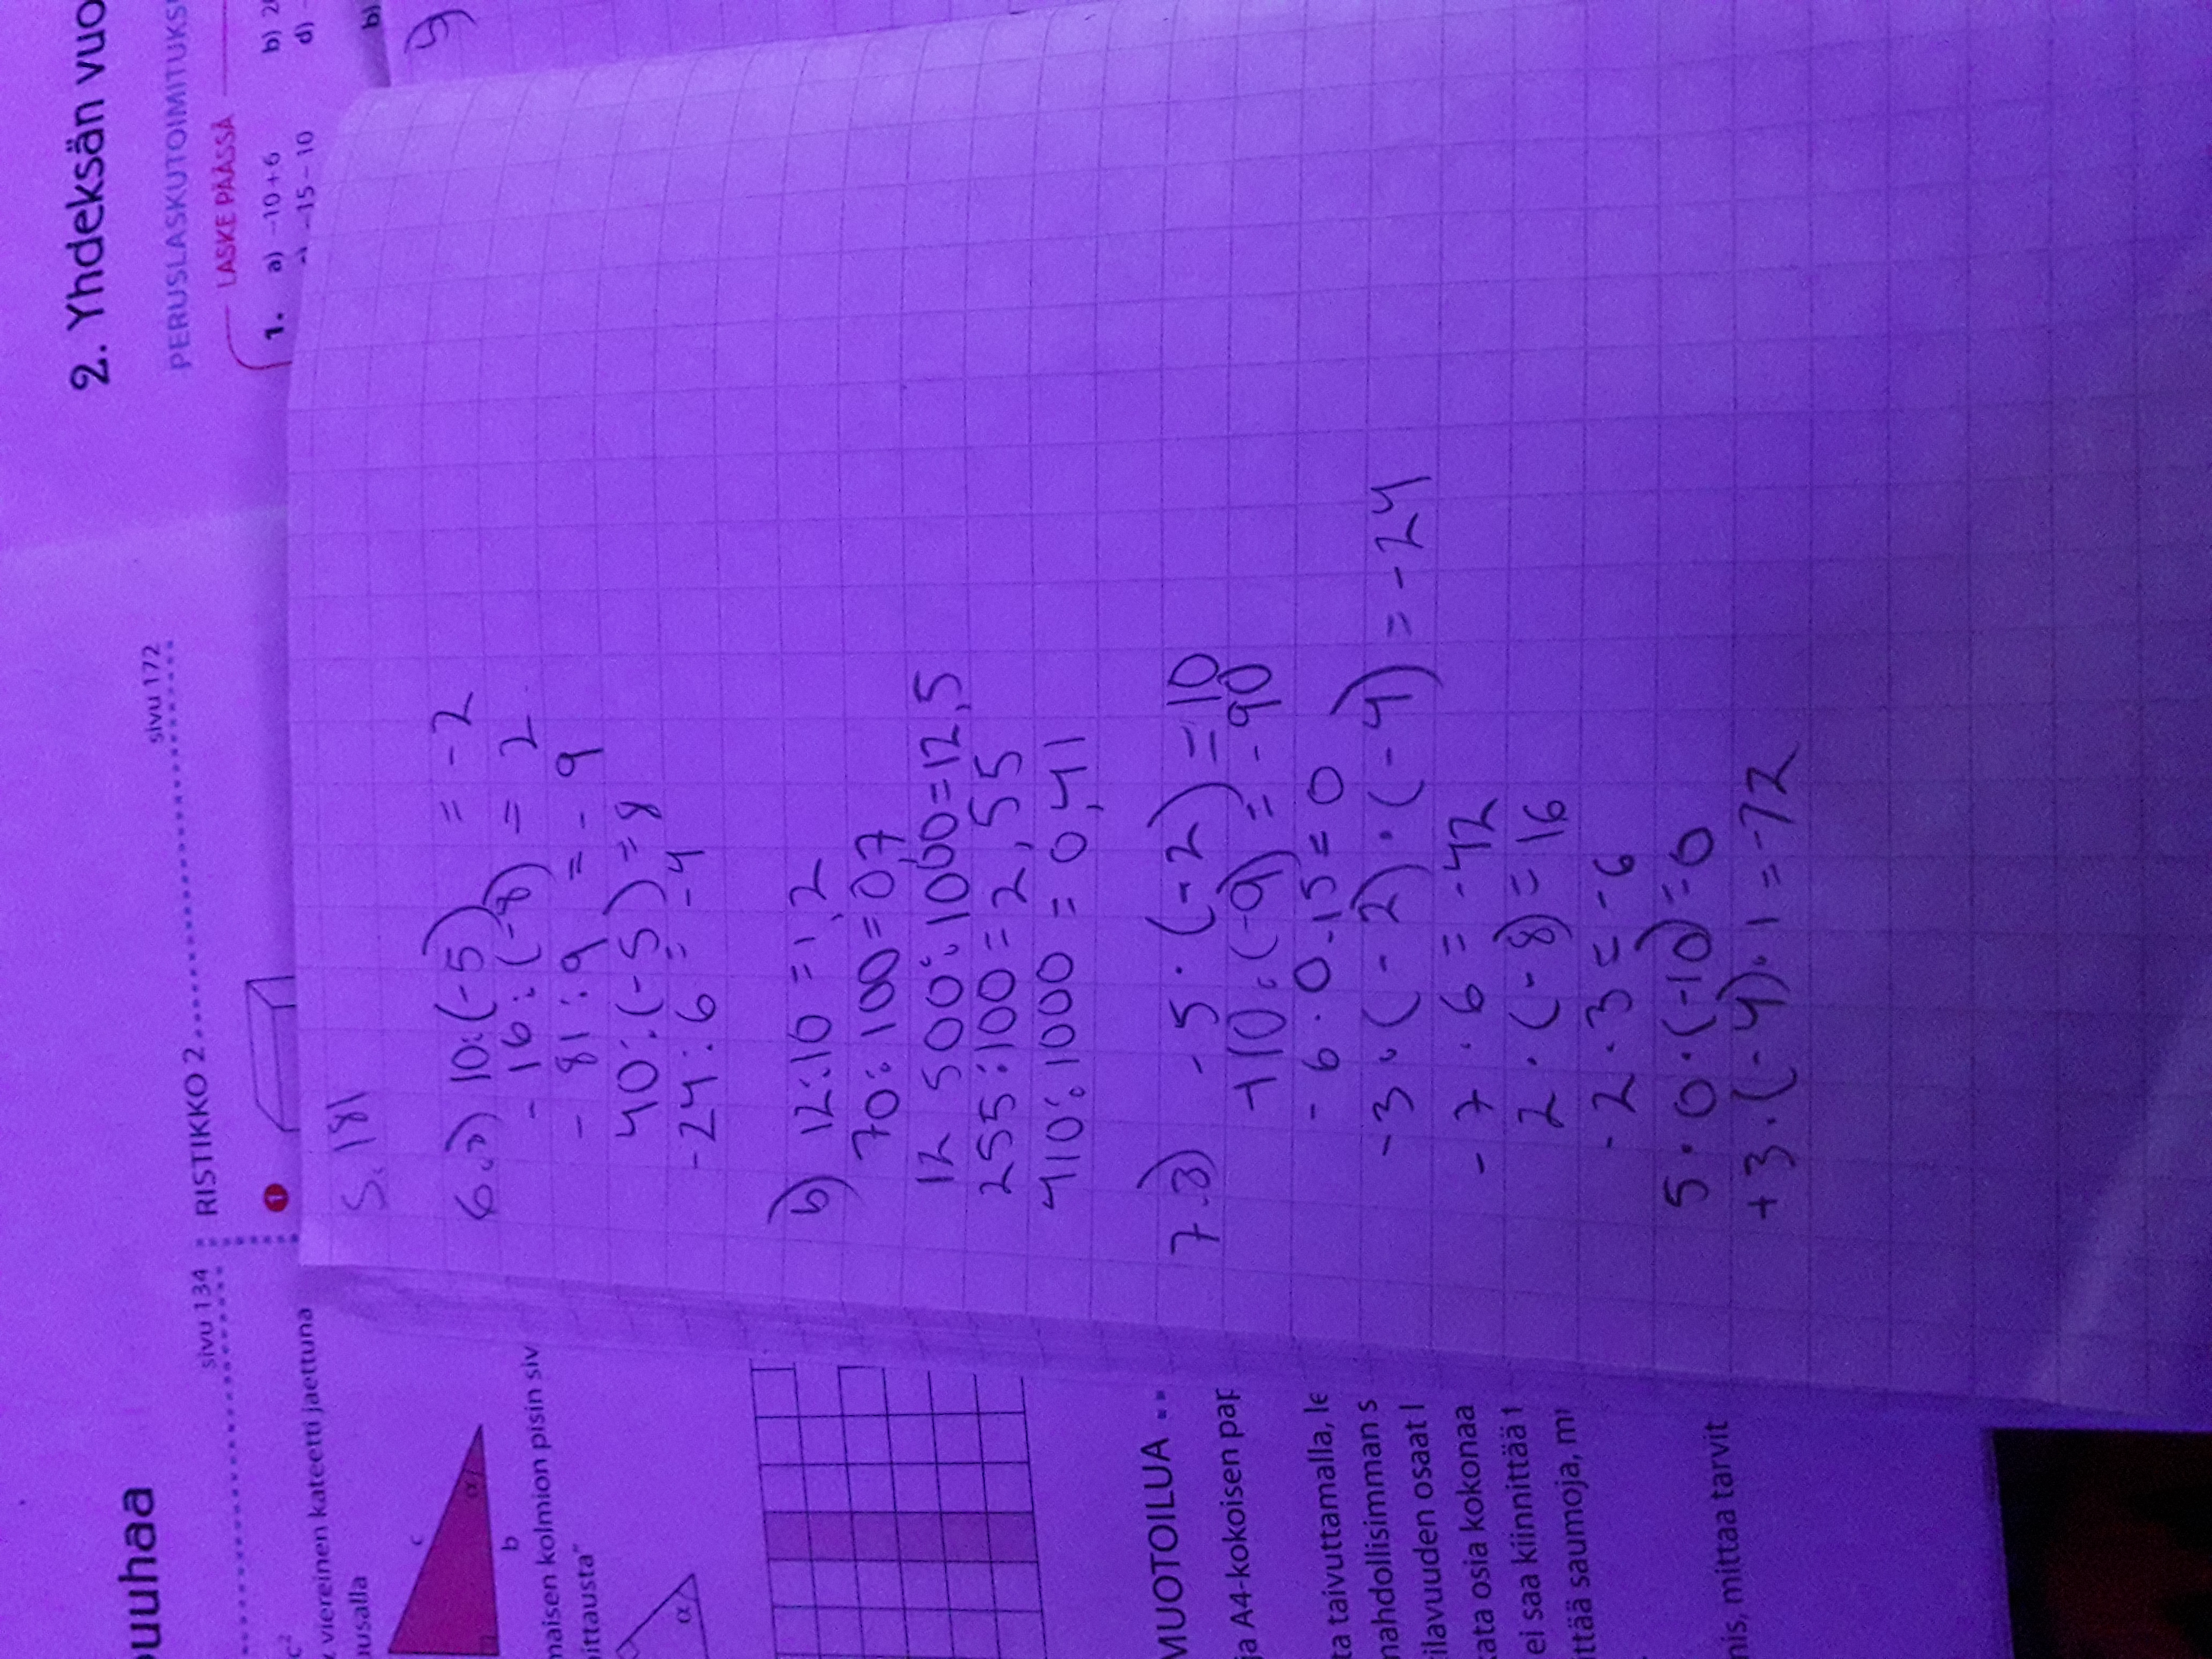 puuhaa
sivu 134
RISTIKKO 2
sivu 172
1
c²
viereinen kateetti jaettuna
usalla
c
α
b
maisen kolmion pisin siv
ittausta"
α
MUOTOILUA
ja A4-kokoisen pap
ta taivuttamalla, le
mahdollisimman s
ilavuuden osaat l
kata osia kokonaa
ei saa kiinnittää t
ttää saumoja, m
nis, mittaa tarvit
2. Yhdeksän vuo
PERUSLASKUTOIMITUKS
LASKE PÄÄSSÄ
1. a) -10+6
b) 2
-15 - 10
d) -
b)
s. 181
6.a) 10:(-5) = -2
-16:(-8) = 2
-81:9 = -9
40:(-5)=8
-24:6 = -4
b) 12:10 = 1,2
70:100=0,7
12 500:1000=12,5
255:100=2,55
410:1000 = 0,41
7.a) -5·(-2)=10
+10·(-9)=-90
-6·0·15=0
-3·(-2)·(-4)=-24
-7·6=-42
2·(-8)=16
-2·3=-6
5·0·(-10)=0
+3·(-4)·1=-12